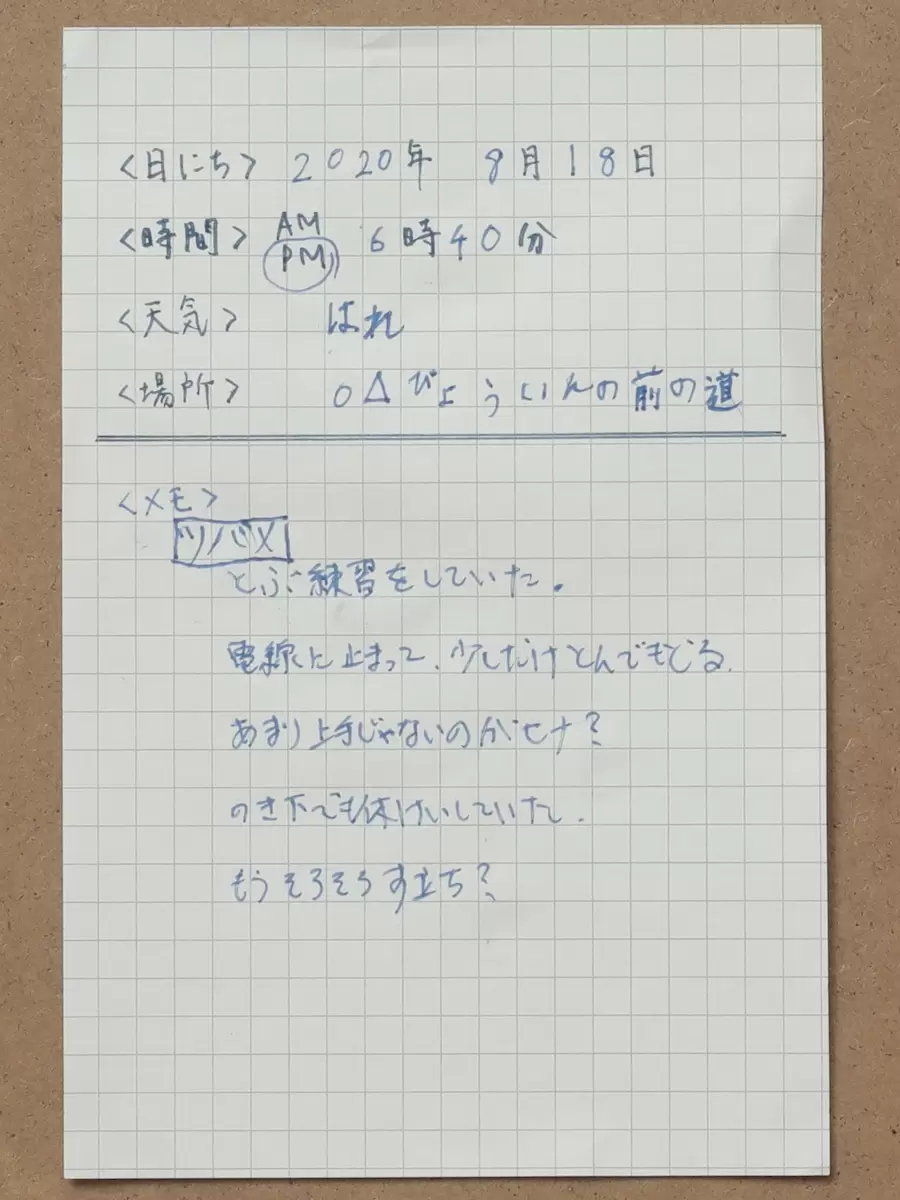 <日にち> 2020年 8月18日
<時間> AM PM 6時40分
<天気> はれ
<場所> ○△びょういんの前の道
<メモ>
ツバメ
とぶ練習をしていた。
電線に止まって、少しだけとんでもどる。
あまり上手じゃないのが
のき下でも休けいしていた。
もうそろそろす立ち?